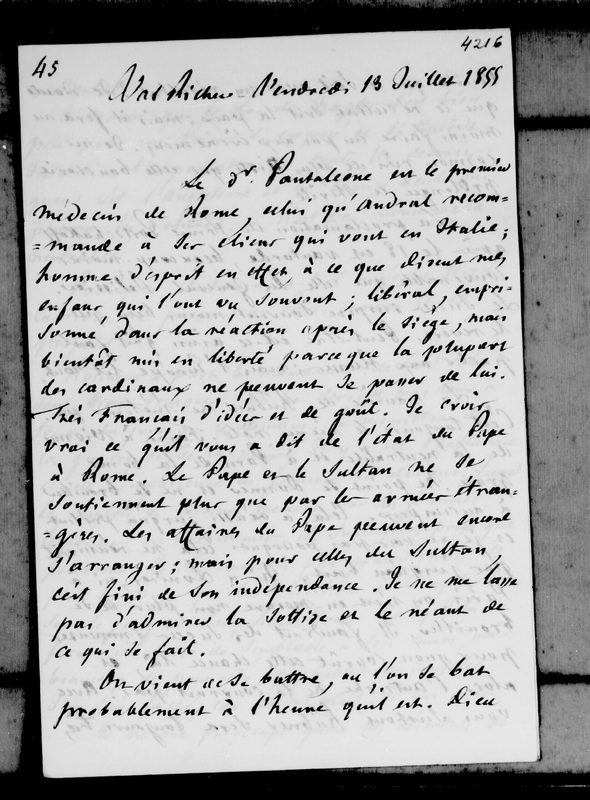 45
4216
Val Richer Vendredi 13 Juillet 1855
Le Dr. Pantaleone est le premier
médecin de Rome, celui qu'Andral recom-
-mande à ses cliens qui vont en Italie ;
homme d'esprit en effet, à ce que disent mes
enfans, qui l'ont vu souvent ; libéral, empri-
sonné dans la réaction après le siège, mais
bientôt mis en liberté parceque la plupart
des cardinaux ne peuvent se passer de lui.
Très Français d'idées et de goût. Je crois
vrai ce qu'il vous a dit de l'état du Pape
à Rome. Le Pape et le Sultan ne se
soutiennent plus que par les armées étran-
-gères. Les affaires du Pape peuvent encore
s'arranger ; mais pour celles du Sultan,
c'est fini de son indépendance. Je ne me lasse
pas d'admirer la sottise et le néant de
ce qui se fait.
On vient de se battre, ou l'on se bat
probablement à l'heure qu'il est. Dieu